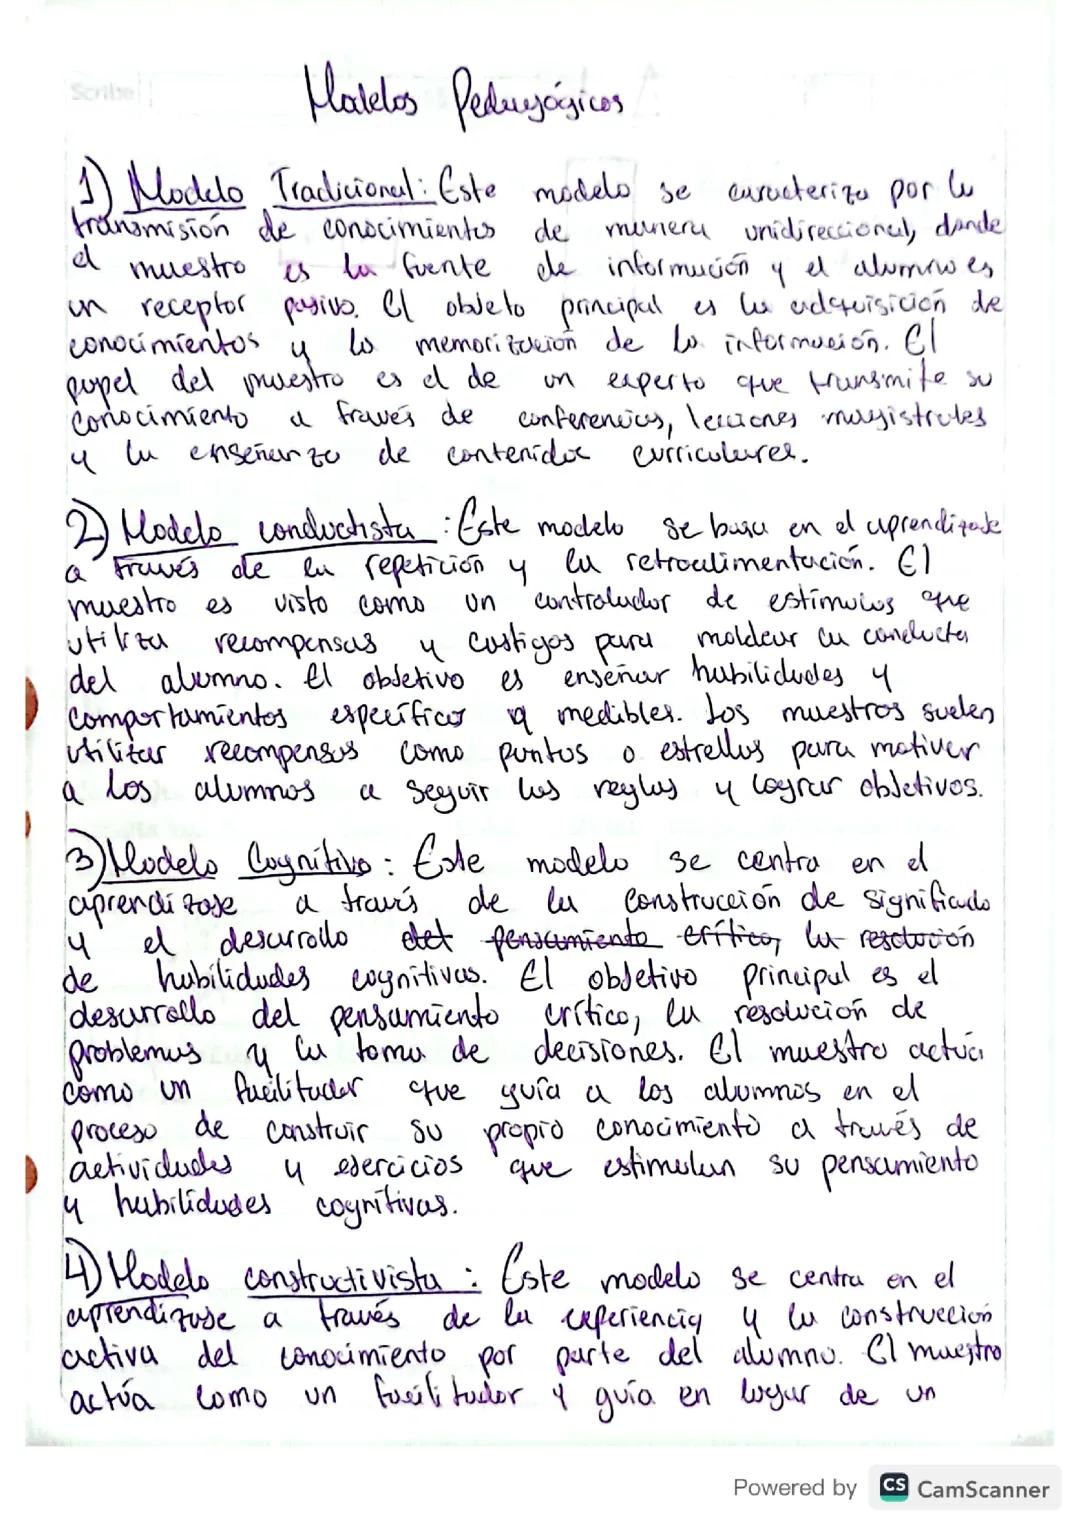 Scribe
Modelos Pedagógicos
1) Modelo Tradicional: Este modelo se caracteriza por la
transmisión de conocimientos de manera unidireccional, donde
el maestro es la fuente de información y el alumno es
un receptor pasivo. El objeto principal es la adquisición de
conocimientos y la memorización de la información. El
papel del maestro es el de un experto que transmite su
conocimiento a través de conferencias, lecciones magistrales
y la enseñanza de contenidos curriculares.
2) Modelo conductista: Este modelo se basa en el aprendizaje
a través de la repetición y la retroalimentación. El
maestro es visto como un controlador de estímulos que
utiliza recompensas y castigos para moldear la conducta
del alumno. El objetivo es enseñar habilidades y
comportamientos específicos y medibles. Los maestros suelen
utilizar recompensas como puntos o estrellas para motivar
a los alumnos a seguir las reglas y lograr objetivos.
3) Modelo Cognitivo: Este modelo se centra en el
aprendizaje a través de la construcción de significado
y el desarrollo del pensamiento crítico, la resolución
de habilidades cognitivas. El objetivo principal es el
desarrollo del pensamiento crítico, la resolución de
problemas y la toma de decisiones. El maestro actúa
como un facilitador que guía a los alumnos en el
proceso de construir su propio conocimiento a través de
actividades y ejercicios que estimulan su pensamiento
y habilidades cognitivas.
4) Modelo constructivista: Este modelo se centra en el
aprendizaje a través de la experiencia y la construcción
activa del conocimiento por parte del alumno. El maestro
actúa como un facilitador y guía en lugar de un
Powered by CS CamScanner